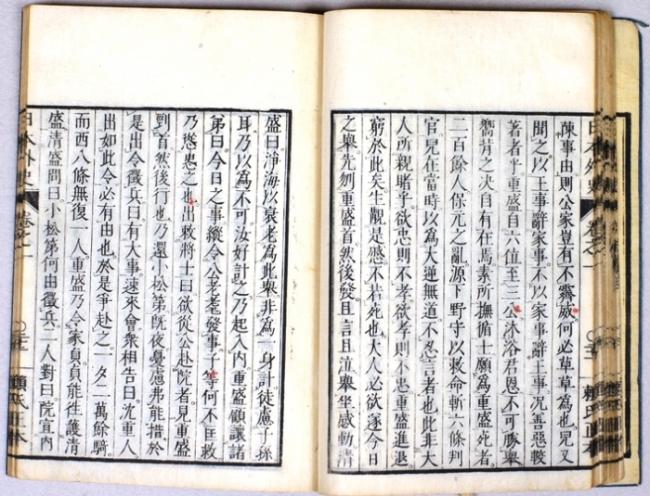 陳事由則公家豈有不霽威何必草草為也兒又
聞之以王事辭家事不以家事辭王事況善惡較
著者乎重盛自六位至三公沐浴君恩不可勝舉
嚮背之決自有在焉素所撫循士願為重盛死者
二百餘人保元之亂源下野守以敕命斬六條判
官兒在當時以為大逆無道不忍言者也此非大
人所親睹乎欲忠則不孝欲孝則不忠重盛進退
窮於此矣生觀是慼不若死也大人必欲遂今日
之舉先刎重盛首然後發且言且泣舉坐感動清
盛曰淨海以衰老為此舉非為一身計徒慮子孫
耳乃以為不可汝好計之乃起入內重盛顧讓諸
弟曰今日之事縱令公耄老發事子等何不匡救
乃慫恿之也出敕將士曰欲從公赴院者見重盛
到首然後行也乃還小松第既夜憂慮弗能措於
是出令徵兵曰有大事速來會衆相告曰沈重人
出如此令必有由也於是爭赴之一夕二萬餘騎
而西八條無復一人重盛乃令家貞貞能往護清
盛清盛問曰小松第何由徵兵二人對曰院宣內
日本外史 卷之一 賴氏正本